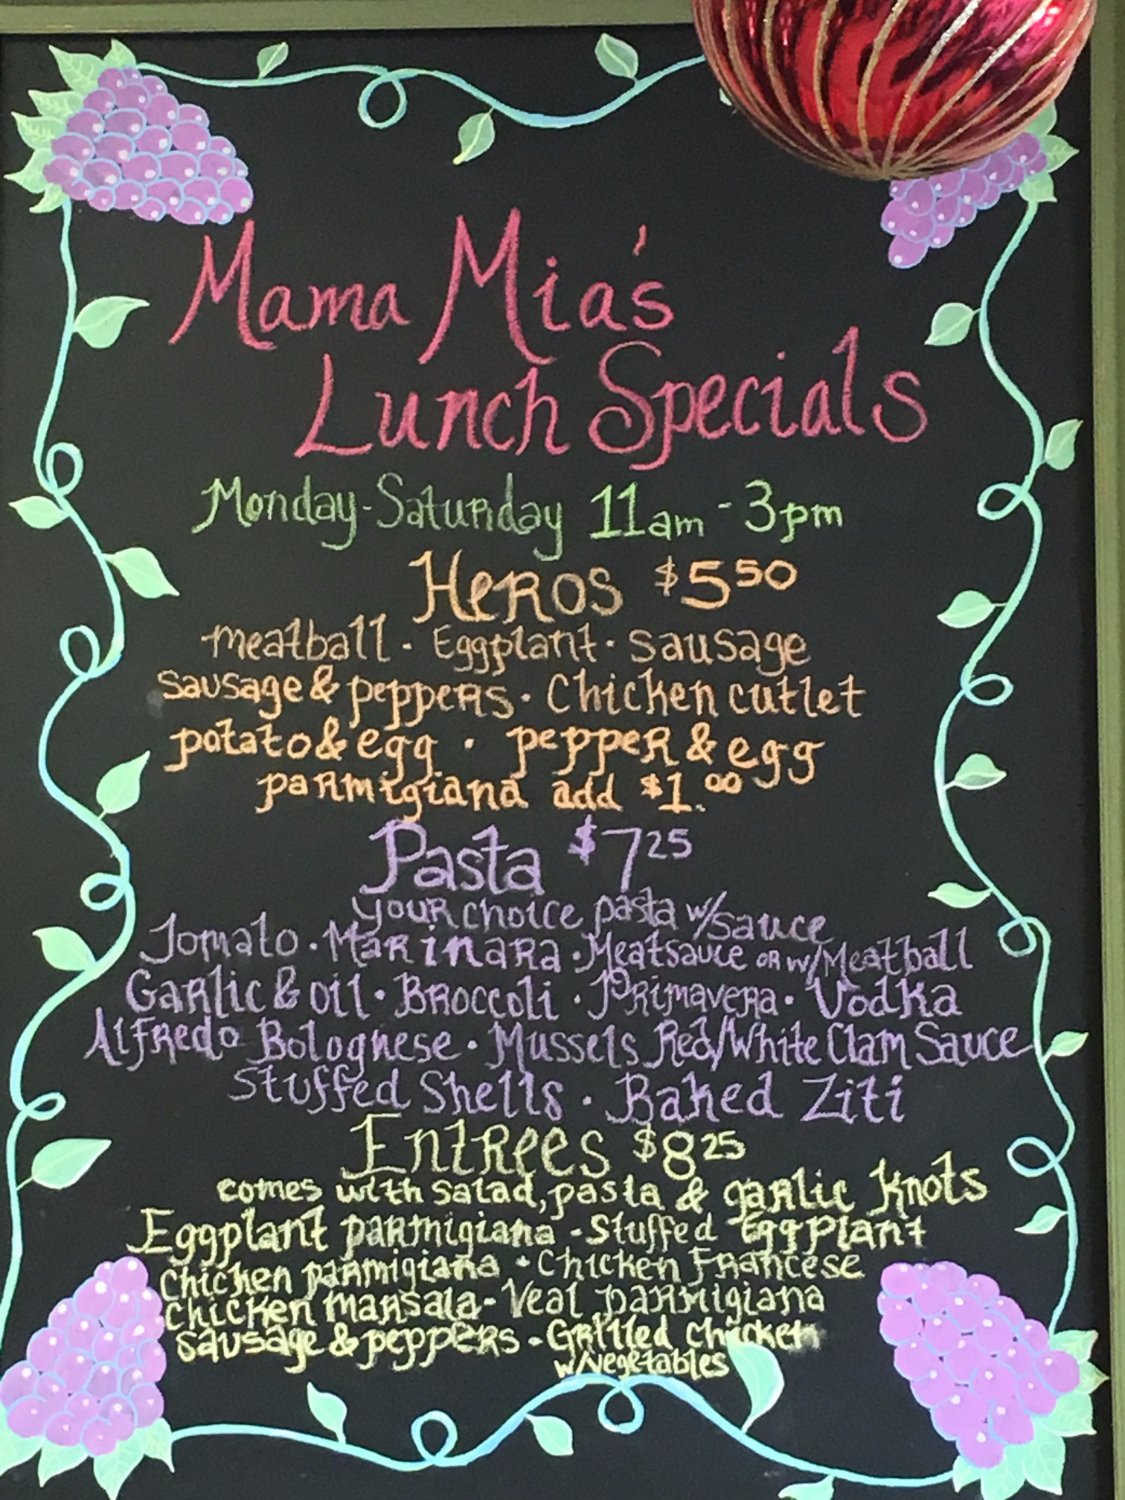 Mama Mia's
Lunch Specials
Monday-Saturday 11am-3pm
Heros $5.50
meatball · Eggplant · sausage
sausage & peppers · Chicken cutlet
potato & egg · pepper & egg
parmigiana add $1.00
Pasta $7.25
your choice pasta w/sauce
Tomato · Marinara · Meatsauce or w/Meatball
Garlic & oil · Broccoli · Primavera · Vodka
Alfredo Bolognese · Mussels Red/White Clam Sauce
Stuffed Shells · Baked Ziti
Entrees $8.25
comes with salad, pasta & garlic knots
Eggplant parmigiana - Stuffed Eggplant
Chicken parmigiana · Chicken Francese
Chicken marsala - Veal parmigiana
sausage & peppers - Grilled chicken
w/vegetables